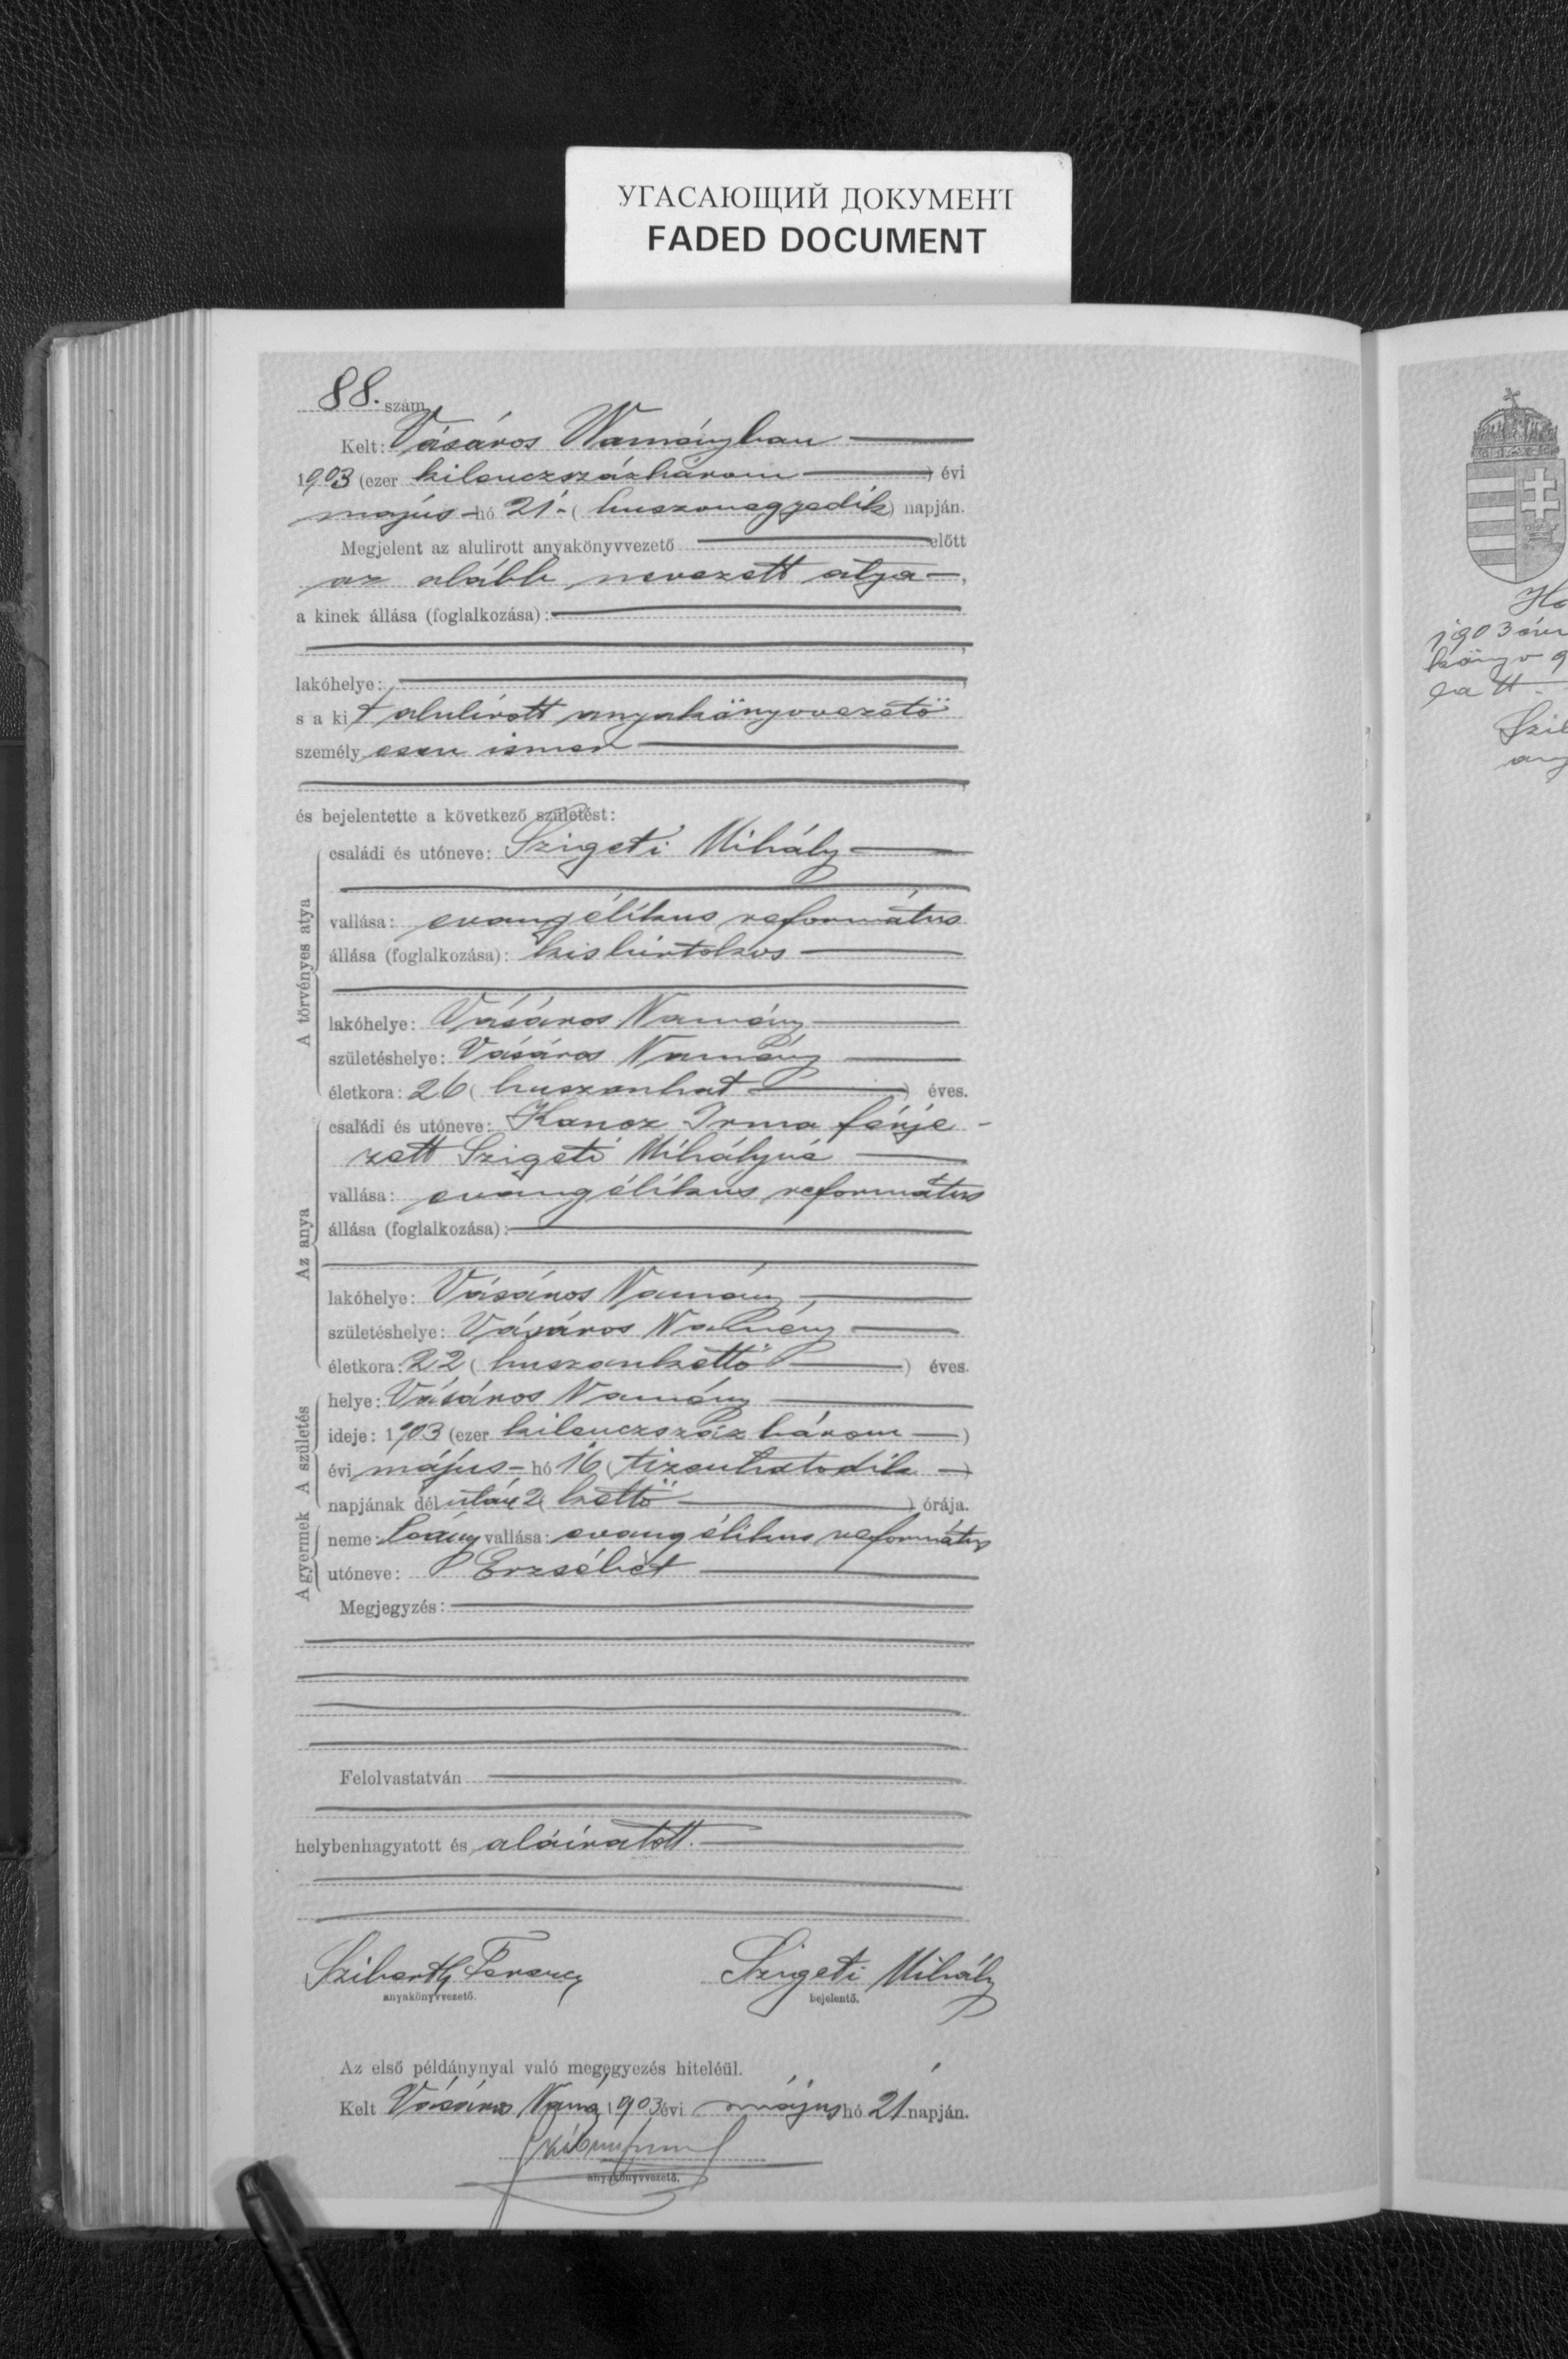 УГАСАЮЩИЙ ДОКУМЕНТ
FADED DOCUMENT
88. szám
Kelt: Vásáros Naményban
1903 (ezer kilenczszázhárom) évi
május hó 21 (huszonegyedik) napján.
Megjelent az alulirott anyakönyvvezető előtt
az alább nevezett atya,
a kinek állása (foglalkozása):
lakóhelye:
s a kit alulírott anyakönyvvezető
személyesen ismer
és bejelentette a következő születést:
A törvényes atya
családi és utóneve: Szigeti Mihály
vallása: evangélikus református
állása (foglalkozása): kisbirtokos
lakóhelye: Vásáros Namény
születéshelye: Vásáros Namény
életkora: 26 (huszonhat) éves.
Az anya
családi és utóneve: Irma férje-
zett Szigeti Mihályné
vallása: evangélikus református
állása (foglalkozása):
lakóhelye: Vásáros Namény
születéshelye: Vásáros Namény
életkora: 22 (huszonkettő) éves.
A születés
helye: Vásáros Namény
ideje: 1903 (ezer kilenczszáz három)
évi május hó 16 (tizenhatodik)
napjának délután 2 (kettő) órája.
A gyermek
neme: leány vallása: evangélikus református
utóneve: Erzsébet
Megjegyzés:
Felolvastatván
helybenhagyatott és aláíratott.
Ferencz Szigeti Mihály
anyakönyvvezető. bejelentő.
Az első példánynyal való megegyezés hiteléül.
Kelt Vásáros Namé 1903 évi május hó 21 napján.
anyakönyvvezető.
1903